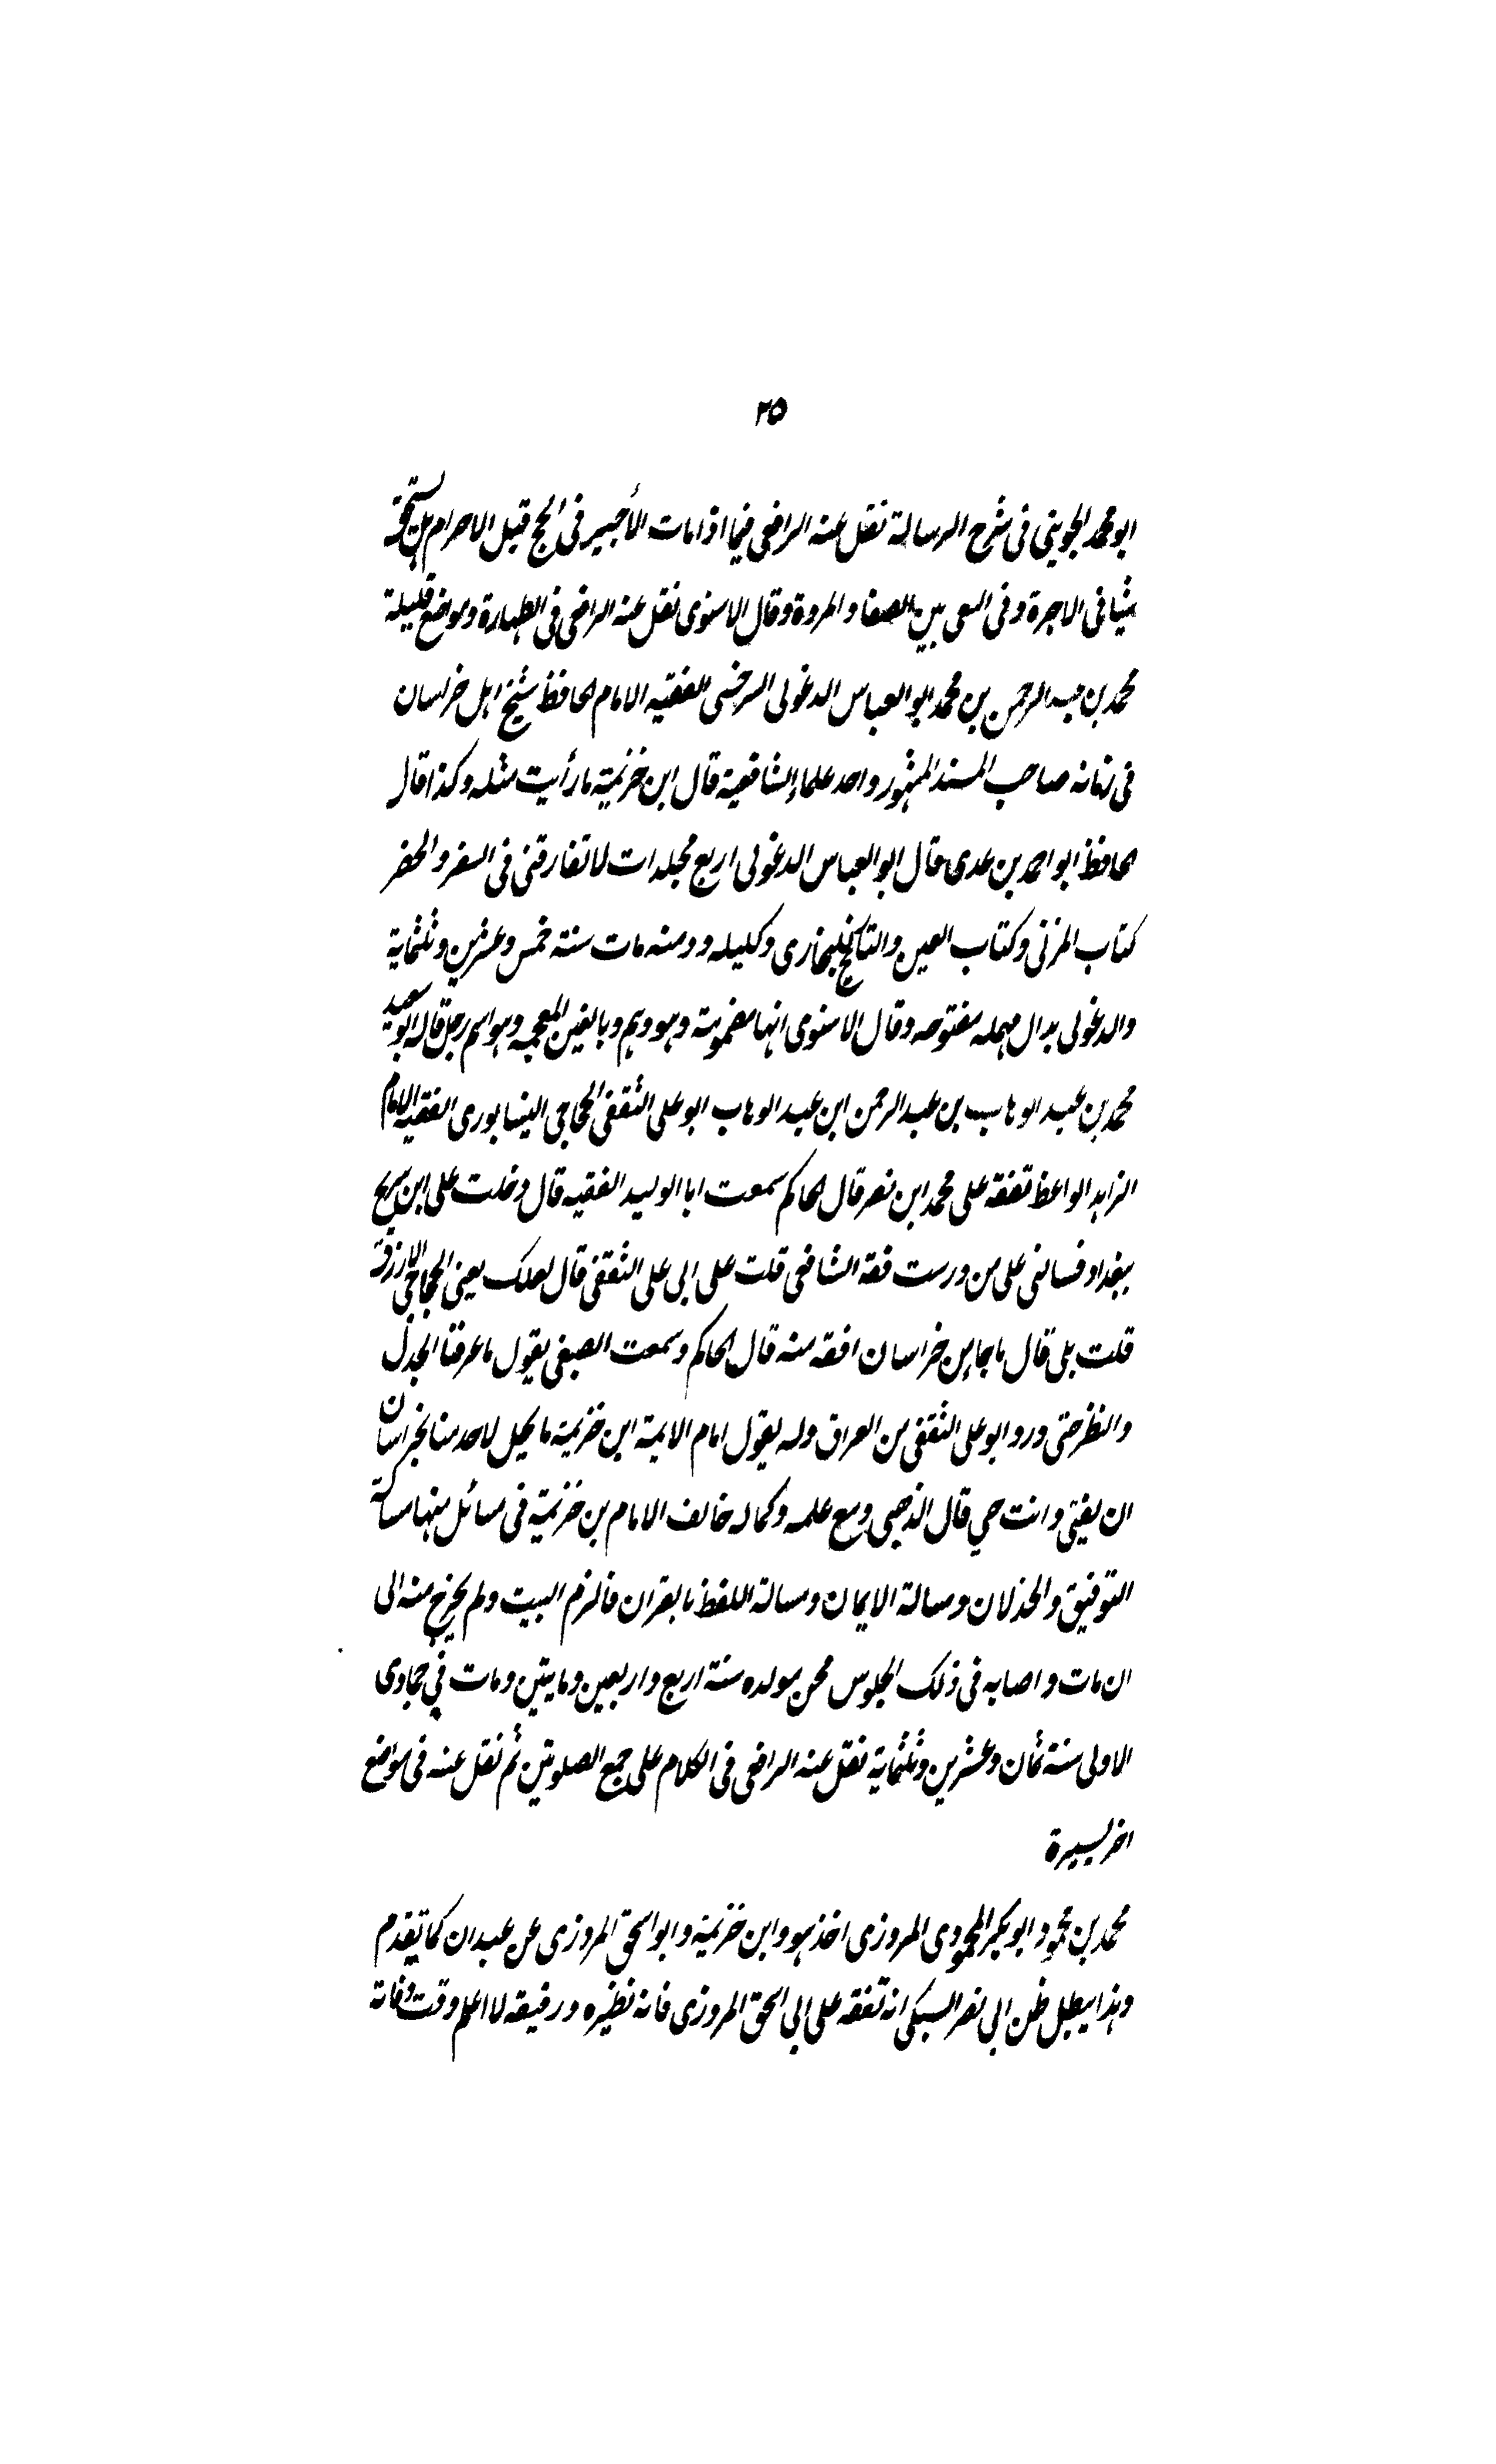 ٢٥
ابو محمد الجويني فى شرح الرسالة نقل عنه الرافعى فيما اذا مات الأجير فى الحج قبل الاحرام هل يستحق
شيئا فى الاجرة وفى السعى بين الصفا والمروة وقال الاسنوى نقل عنه الرافعى فى الطهارة ومواضع قليلة
محمد بن عبد الرحمن بن محمد ابو العباس الدغولى السرخسى الفقيه الامام الحافظ شيخ اهل خراسان
فى زمانه صاحب المسند المشهور واحد علماء الشافعية قال ابن خزيمة ما رأيت مثله وكذا قال
الحافظ ابو احمد بن عدى قال ابو العباس الدغولى اربع مجلدات لا تفارقنى فى السفر والحضر
كتاب المزنى وكتاب العين والتاريخ للبخارى وكليله ودمنه مات سنة خمس وعشرين وثلثماية
والدغولى بدال مهمله مفتوحه وقال الاسنوى انها مضمومة وهو وهم وبالغين المعجمه وهو اسم رجل قاله ابو سعيد
محمد بن عبد الوهاب بن عبد الرحمن ابن عبد الوهاب ابو على الثقفى الحجاجى النيسابورى الفقيه الامام
الزاهد الواعظ تفقه على محمد ابن نصر قال الحاكم سمعت ابا الوليد الفقيه قال دخلت على ابن سريج
ببغداد فسالنى على من درست فقه الشافعى قلت على ابى على الثقفى قال لعلك يعنى الحجاجى الازرق
قلت بلى قال ما جاء من خراسان افقه منه قال الحاكم وسمعت الصبغى يقول ما عرفنا الجدل
والنظر حتى ورد ابو على الثقفى من العراق وله يقول امام الايمة ابن خزيمة ما يحل لاحد منا بخراسان
ان يفتى وانت حي قال الذهبى ومع علمه وكماله خالف الامام بن خزيمة فى مسائل منها مسالة
التوفيق والخذلان ومسالة الايمان ومسالة اللفظ بالقران فالزم البيت ولم يخرج منه الى
ان مات واصابه فى ذلك الجلوس محن مولده سنة اربع واربعين ومايتين ومات في جمادى
الاولى سنة ثمان وعشرين وثلثماية نقل عنه الرافعى فى الكلام على جمع الصلوتين ثم نقل عنه فى مواضع
اخر يسيرة
محمد بن محمود ابو بكر المحمودى المروزى اخذ هو وابن خزيمة وابو اسحق المروزى عن عبدان كما تقدم
وهذا يبطل ظن ابى نصر السبكى انه تفقه على ابى اسحق المروزى فانه نظيره ورفيقه لا اعلم وقت وفاته